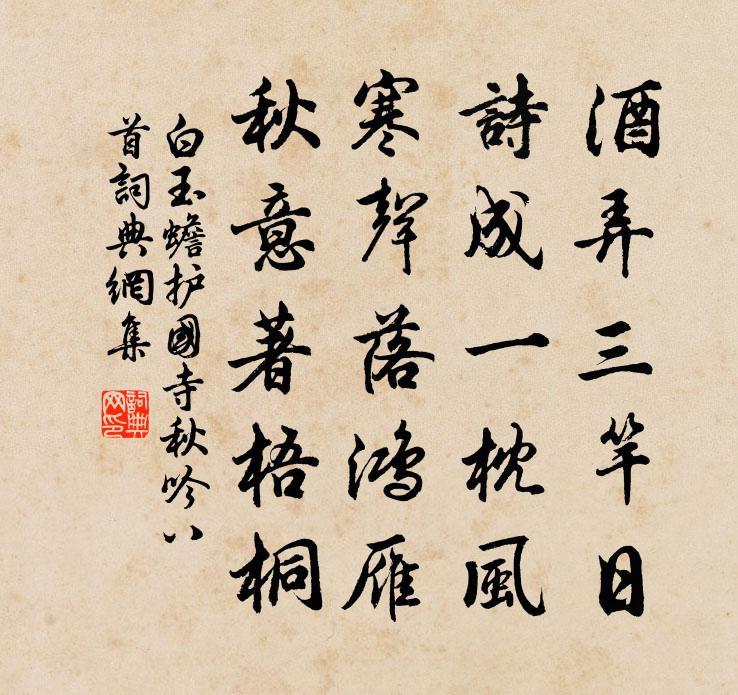 酒弄三竿日
詩成一枕風
寒聲落鴻雁
秋意著梧桐
白玉蟾护國寺秋吟八
首詞典網集
詞典
网印